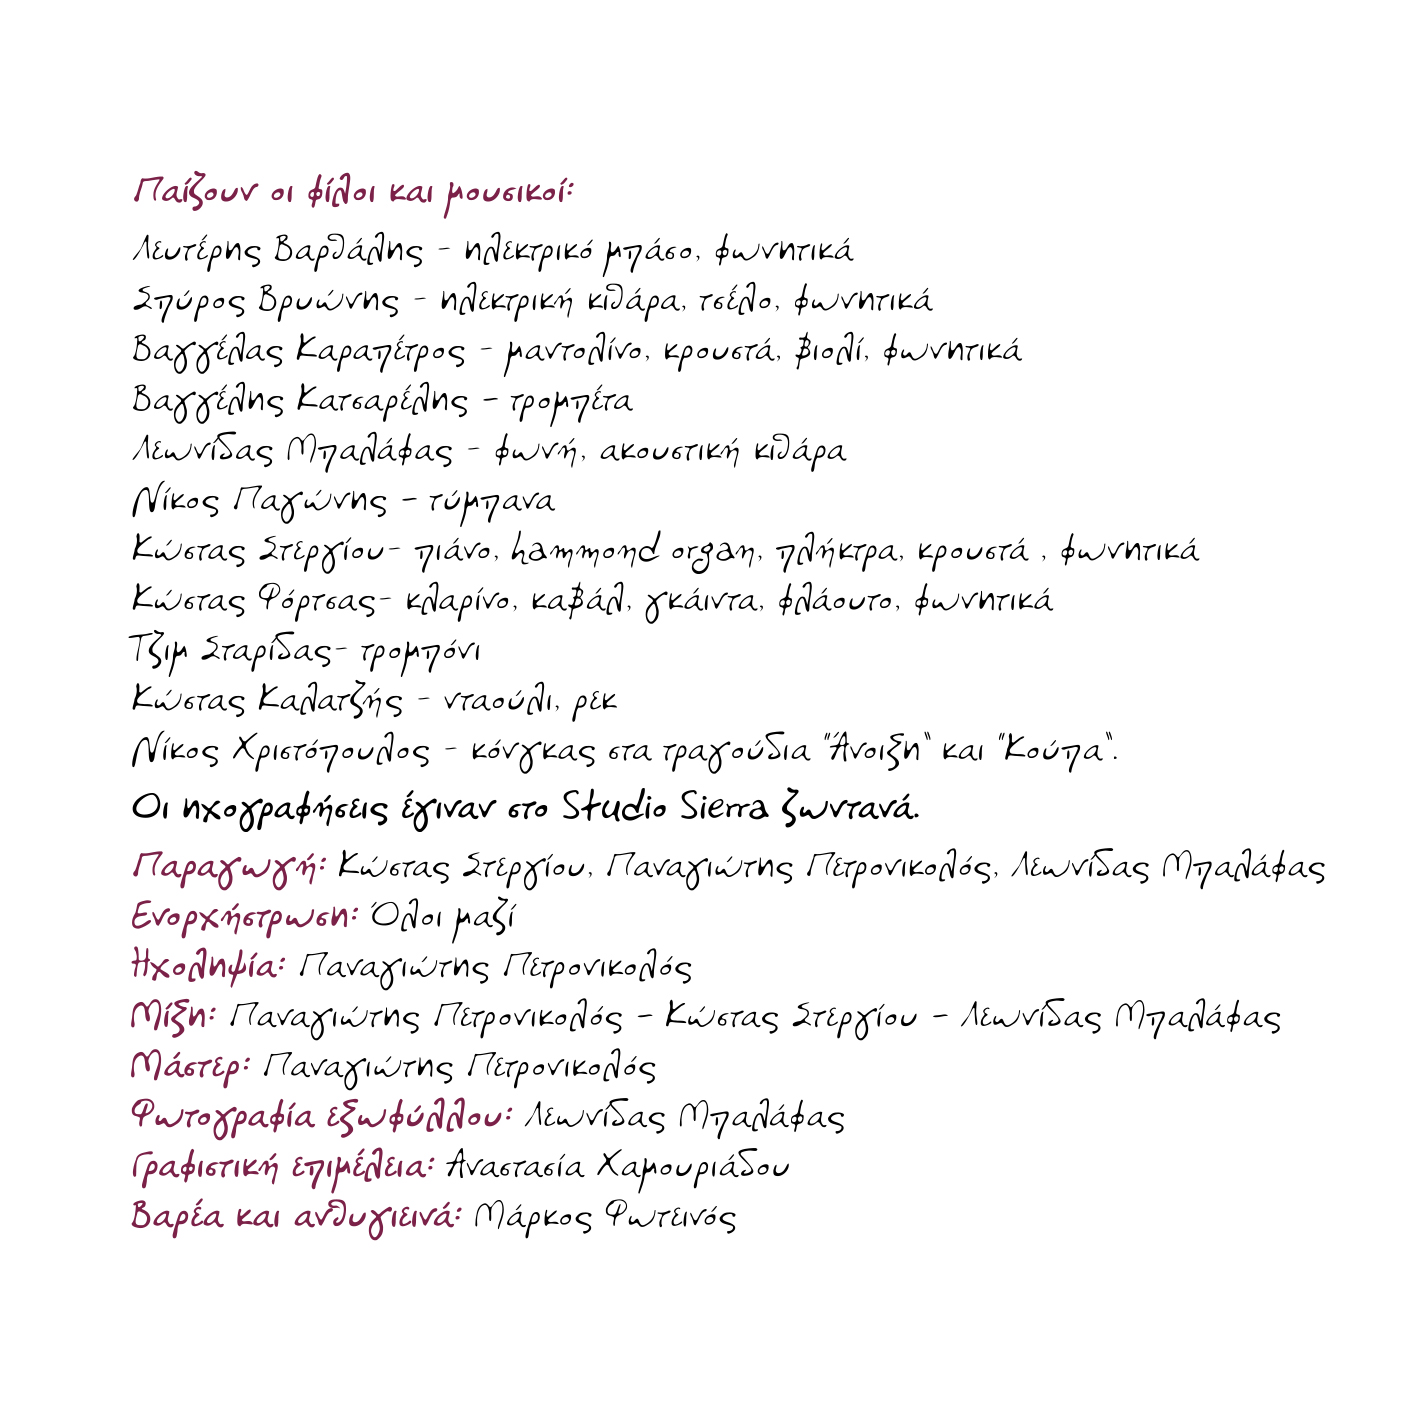 Παίζουν οι φίλοι και μουσικοί:
Λευτέρης Βαρθάλης - ηλεκτρικό μπάσο, φωνητικά
Σπύρος Βρυώνης - ηλεκτρική κιθάρα, τσέλο, φωνητικά
Βαγγέλας Καραπέτρος - μαντολίνο, κρουστά, βιολί, φωνητικά
Βαγγέλης Κατσαρέλης - τρομπέτα
Λεωνίδας Μπαλάφας - φωνή, ακουστική κιθάρα
Νίκος Παγώνης - τύμπανα
Κώστας Στεργίου- πιάνο, hammond organ, πλήκτρα, κρουστά , φωνητικά
Κώστας Φόρτσας- κλαρίνο, καβάλ, γκάιντα, φλάουτο, φωνητικά
Τζιμ Σταρίδας- τρομπόνι
Κώστας Καλατζής - νταούλι, ρεκ
Νίκος Χριστόπουλος - κόνγκας στα τραγούδια "Άνοιξη" και "Κούπα".
Οι ηχογραφήσεις έγιναν στο Studio Sierra ζωντανά.
Παραγωγή: Κώστας Στεργίου, Παναγιώτης Πετρονικολός, Λεωνίδας Μπαλάφας
Ενορχήστρωση: Όλοι μαζί
Ηχοληψία: Παναγιώτης Πετρονικολός
Μίξη: Παναγιώτης Πετρονικολός - Κώστας Στεργίου - Λεωνίδας Μπαλάφας
Μάστερ: Παναγιώτης Πετρονικολός
Φωτογραφία εξωφύλλου: Λεωνίδας Μπαλάφας
Γραφιστική επιμέλεια: Αναστασία Χαμουριάδου
Βαρέα και ανθυγιεινά: Μάρκος Φωτεινός